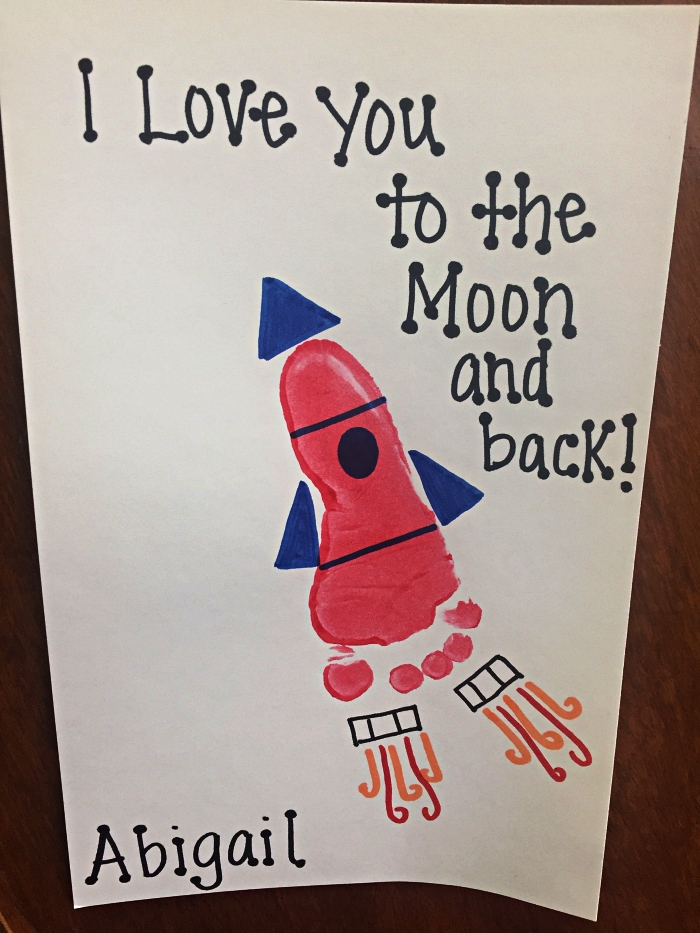 I Love You
to the
Moon
and
back!
Abigail